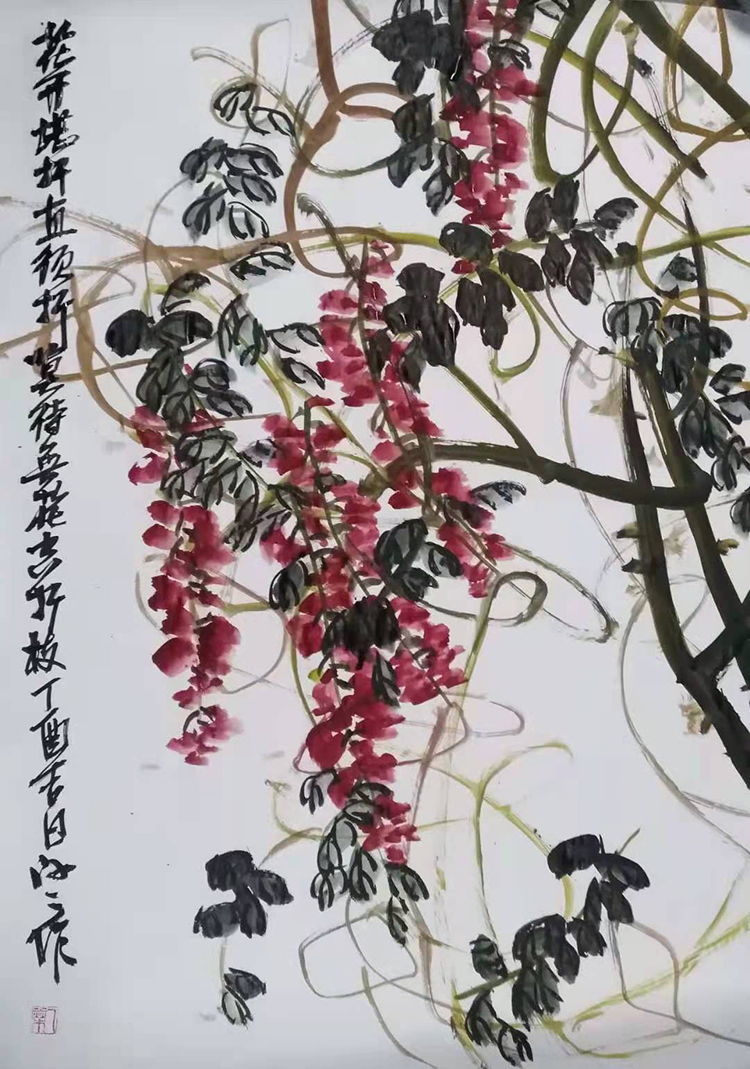 花开堪折直须折莫待无花空折枝丁酉吉日
作